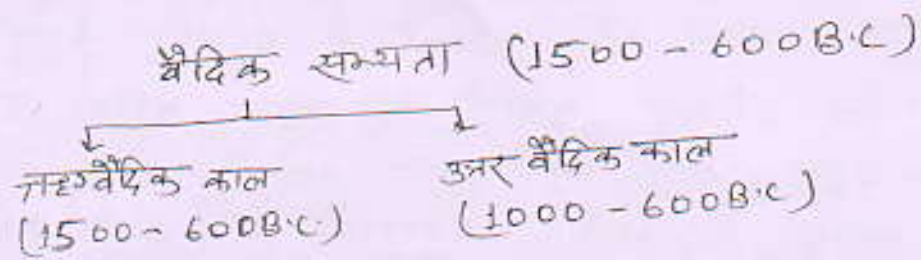 वैदिक सभ्यता (1500 - 600 B.C)
ऋग्वैदिक काल
(1500 - 600 B.C.)
उत्तर वैदिक काल
(1000 - 600 B.C)